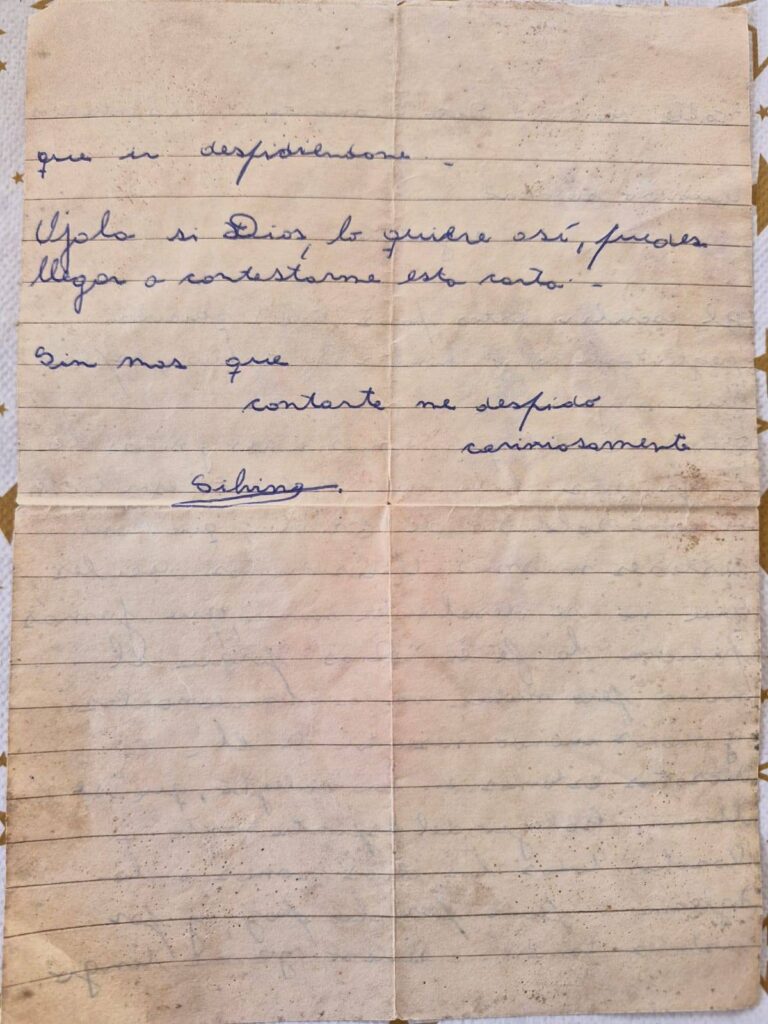 que ir despidiendome. -
Ojala si Dios, lo quiere así, puedes
llegar a contestarme esta carta. -
Sin mas que
contarte me despido
cariniosamente